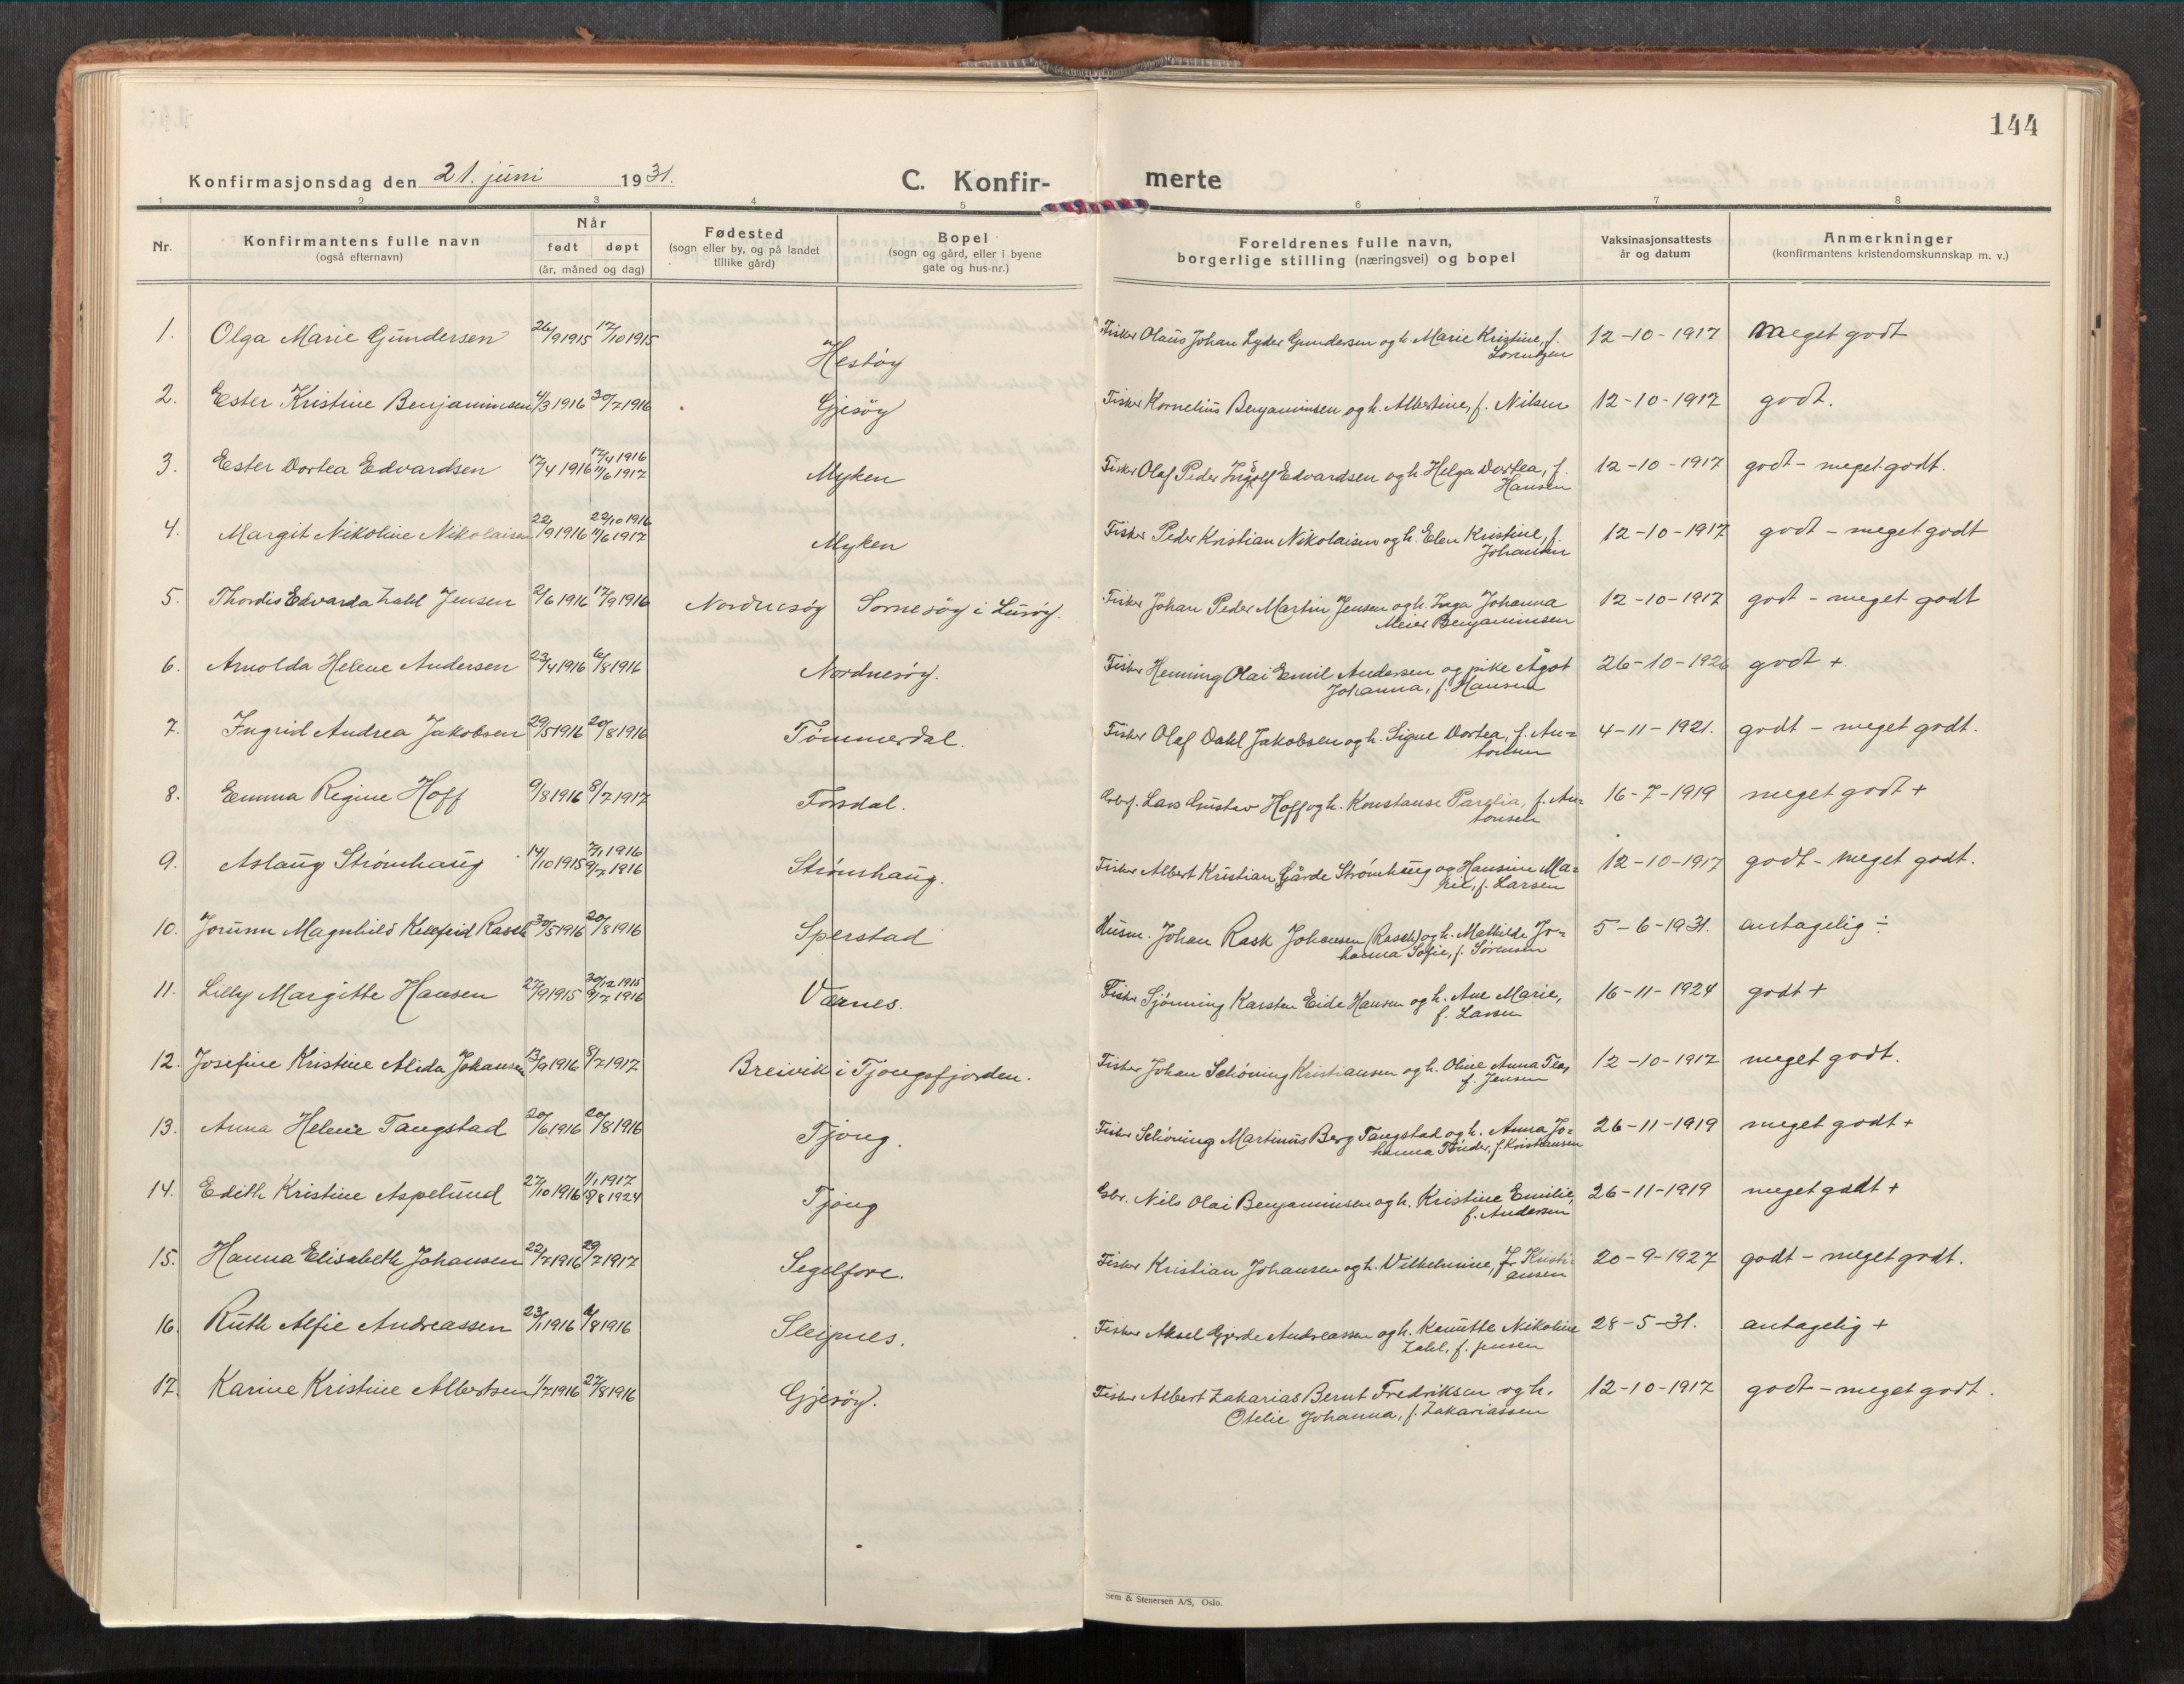 144
Konfirmasjonsdag den 21. juni 1931.
C. Konfir-
merte
1 2 3 4 5 6 7 8
Nr.
Konfirmantens fulle navn
(også efternavn)
Når
født døpt
(år, måned og dag)
Fødested
(sogn eller by, og på landet
tillike gård)
Bopel
(sogn og gård, eller i byene
gate og hus-nr.)
Foreldrenes fulle navn,
borgerlige stilling (næringsvei) og bopel
Vaksinasjonsattests
år og datum
Anmerkninger
(konfirmantens kristendomskunnskap m. v.)
1. Olga Marie Gundersen 26/9 1915 17/10 1915 Hestøy Fisker Olaus Johan Lyder Gundersen og h. Marie Kristine, f. 12-10-1917 Meget godt
Lorentzen
2. Ester Kristine Benjaminsen 4/3 1916 30/7 1916 Gjesøy Fisker Kornelius Benjaminsen og h. Albertine, f. Nilsen 12-10-1917 godt.
3. Ester Dortea Edvardsen 17/4 1916 17/4 1916 11/6 1917 Myken Fisker Olaf Peder Ingolf Edvardsen og h. Helga Dortea, f. 12-10-1917 godt - meget godt.
Hansen
4. Margit Nikoline Nikolaisen 22/9 1916 22/10 1916 11/6 1917 Myken Fisker Peder Kristian Nikolaisen og h. Elen Kristine, f. 12-10-1917 godt - meget godt
Johansen
5. Thordis Edvarda Zahl Jensen 2/6 1916 17/9 1916 Nordnesøy Sørnesøy i Lurøy. Fisker Johan Peder Martin Jensen og h. Inga Johanna 12-10-1917 godt - meget godt
Meier Benjaminsen
6. Arnolda Helene Andersen 23/4 1916 6/8 1916 Nordnesøy. Fisker Henning Olai Emil Andersen og pike Ågot 26-10-1926 godt +
Johanna, f. Hansen
7. Ingrid Andrea Jakobsen 29/5 1916 20/8 1916 Tømmerdal. Fisker Olaf Dahl Jakobsen og h. Signe Dortea, f. An= 4-11-1921. godt - meget godt.
tonsen
8. Emma Regine Hoff 9/8 1916 8/7 1917 Forsdal. Arb.f. Lars Gustav Hoff og h. Konstanse Parelia, f. An= 16-7-1919 meget godt +
tonsen
9. Aslaug Strømhaug 14/10 1915 2/1 1916 9/7 1916 Strømshaug. Fisker Albert Kristian Gårde Strømhaug og Hansine Ma= 12-10-1917 godt - meget godt.
rie, f. Larsen
10. Jorunn Magnhild Kellfrid Rasch 30/5 1916 20/8 1916 Sperstad Husm. Johan Rask Johansen (Rasch) og h. Mathilde Jo= 5-6-1931. antagelig ÷
hanna Sofie, f. Sørensen
11. Lilly Margitte Hansen 27/9 1915 30/12 1915 9/7 1916 Værnes. Fisker Sjønning Karsten Eide Hansen og h. Ane Marie, 16-11-1924 godt +
f. Larsen
12. Josefine Kristine Alida Johansen 13/9 1916 8/7 1917 Breivik i Tjongsfjorden. Fisker Johan Schøning Kristiansen og h. Oline Anna Tea, 12-10-1917 meget godt.
f. Jensen
13. Anna Helene Tangstad 20/6 1916 20/8 1916 Tjong. Fisker Schøning Martinus Berg Tangstad og h. Anna Jo= 26-11-1919 meget godt +
hanna Tønder, f. Kristiansen
14. Edith Kristine Aspelund 27/10 1916 1/1 1917 /8 1924 Tjong Gbr. Nils Olai Benjaminsen og h. Kristine Emilie, 26-11-1919 meget godt +
f. Andersen
15. Hanna Elisabeth Johansen 22/7 1916 29/7 1917 Segelfore. Fisker Kristian Johansen og h. Vilhelmine, f. Kristi- 20-9-1927 godt - meget godt.
ansen
16. Ruth Alfie Andreassen 23/1 1916 6/8 1916 Sleipnes. Fisker Aksel Gjerde Andreassen og h. Kanutte Nikoline 28-5-31. antagelig +
Zahl, f. Jensen
17. Karine Kristine Albertsen 1/7 1916 27/8 1916 Gjesøy. Fisker Albert Zakarias Bernt Fredriksen og h. 12-10-1917 godt - meget godt.
Otelie Johanna, f. Zakariassen
Sem & Stenersen A/S, Oslo.